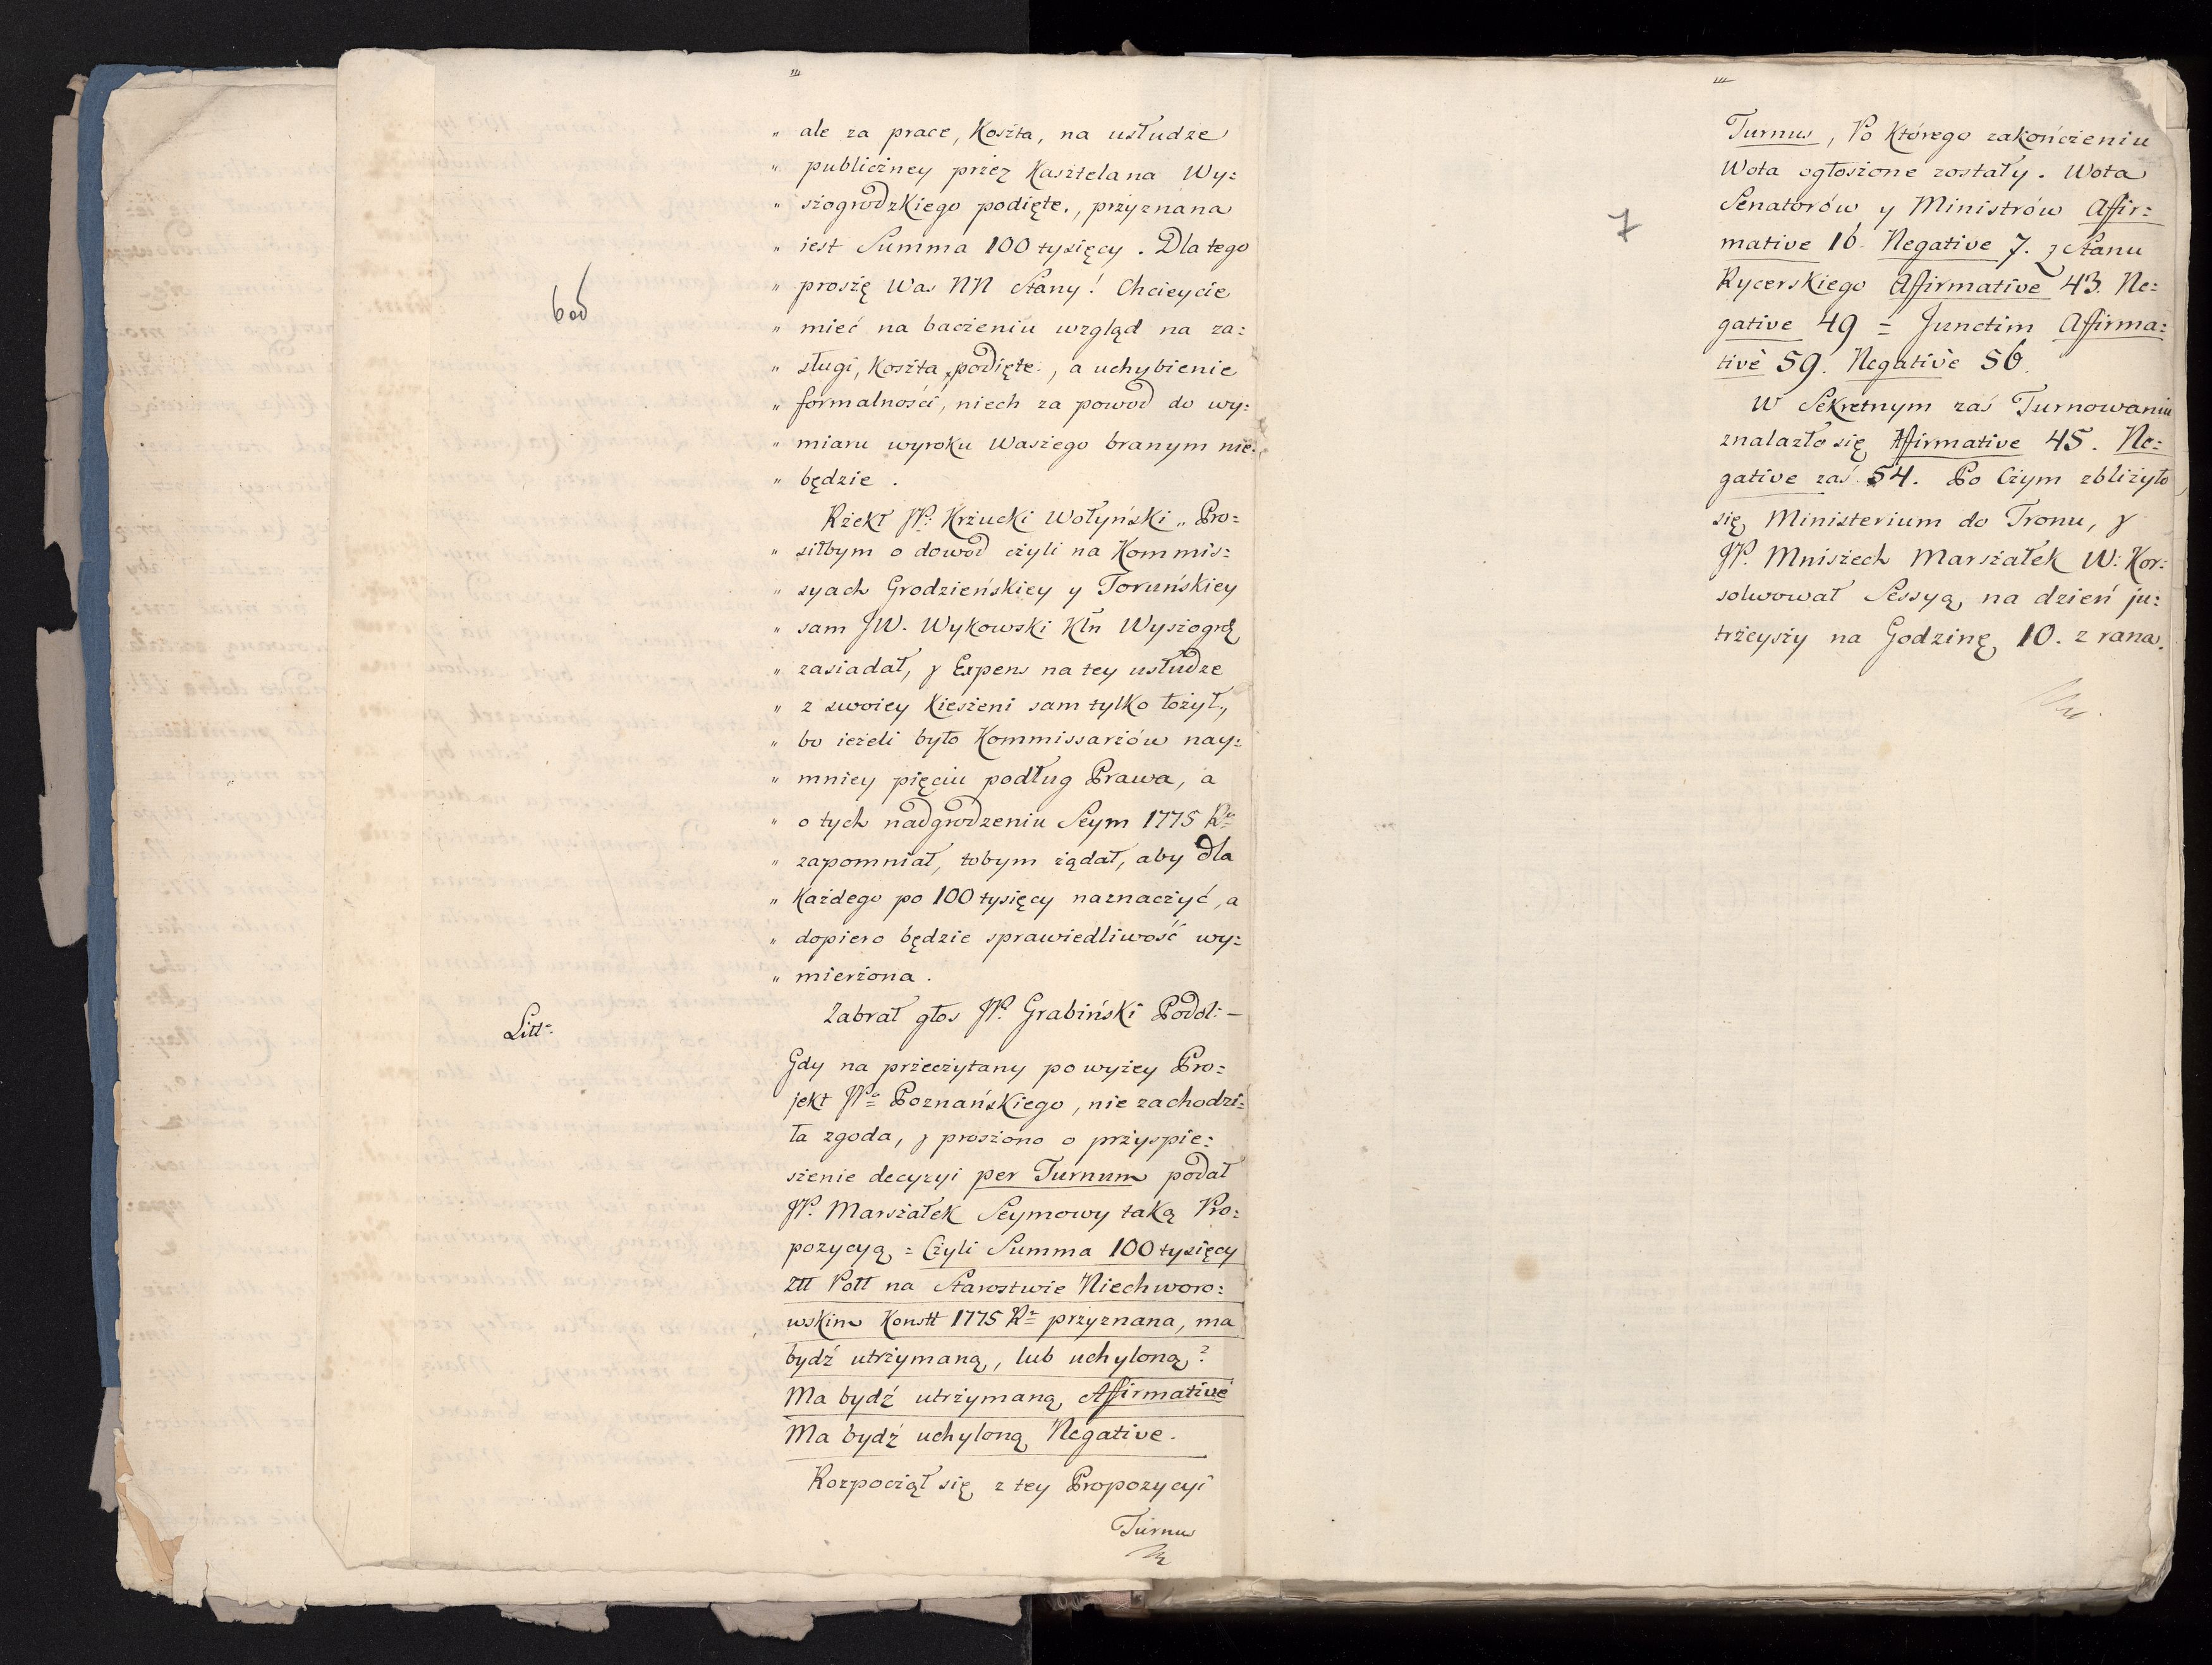 „ ale za prace, Koszta, na usłudze
„ publiczney przez Kasztelana Wy:
„ szogrodzkiego podięte, przyznana
„ iest Summa 100 tysięcy. Dla tego
„ proszę Was NN Stany! Chcieycie
„ mieć na baczeniu wzgląd na za:
„ sługi, Koszta podięte, a uchybienie
„ formalności, niech za powod do wy:
„ miaru wyroku Waszego branym nie
„ będzie.
Rżekł JP: Krzucki Wołyński „ Pro:
„ siłbym o dowod czyli na Kommis:
„ syach Grodzieńskiey y Toruńskiey
„ sam JW. Wykowski Kłn Wyszogrd
„ zasiadał, y Expens na tey usłudze
„ z swoiey Kieszeni sam tylko łożył,
„ bo ieżeli było Kommissarzów nay:
„ mniey pięciu podług Prawa, a
„ o tych nadgrodzeniu Seym 1775 Ru
„ zapomniał, tobym żądał, aby dla
„ Każdego po 100 tysięcy naznaczyć, a
„ dopiero będzie sprawiedliwość wy:
„ mierzona.
Litt:
Zabrał głos JP. Grabiński Podol: —
Gdy na przeczytany powyżey Pro:
jekt JPa Poznańskiego, nie zachodzi:
ła zgoda, y proszono o przyspie:
szenie decyzyi per Turnum podał
JP. Marszałek Seymowy taką Pro:
pozycyą = Czyli Summa 100 tysięcy
Złł Poll na Starostwie Niechworo:
wskim Konstt 1775 Ru przyznana, ma
bydź utrzymaną, lub uchyloną?
Ma bydź utrzymaną Affirmativè
Ma bydź uchyloną Negative.
Rozpoczął się z tey Propozycyi
Turnus
7
Turnus, Po Którego zakończeniu
Wota ogłoszone zostały. Wota
Senatorów y Ministrów Affir:
mative 16. Negative 7. z Stanu
Rycerskiego Affirmative 43. Ne:
gative 49 = Junctim Affirma:
tivè 59. Negativè 56.
W Sekretnym zaś Turnowaniu
znalazło się Affirmative 45. Ne:
gative zaś 54. Po Czym zbliżyło
się Ministerium do Tronu, y
JP. Mniszech Marszałek W: Kor:
solwował Sessyą na dzień ju:
trzeyszy na Godzinę 10. z rana.